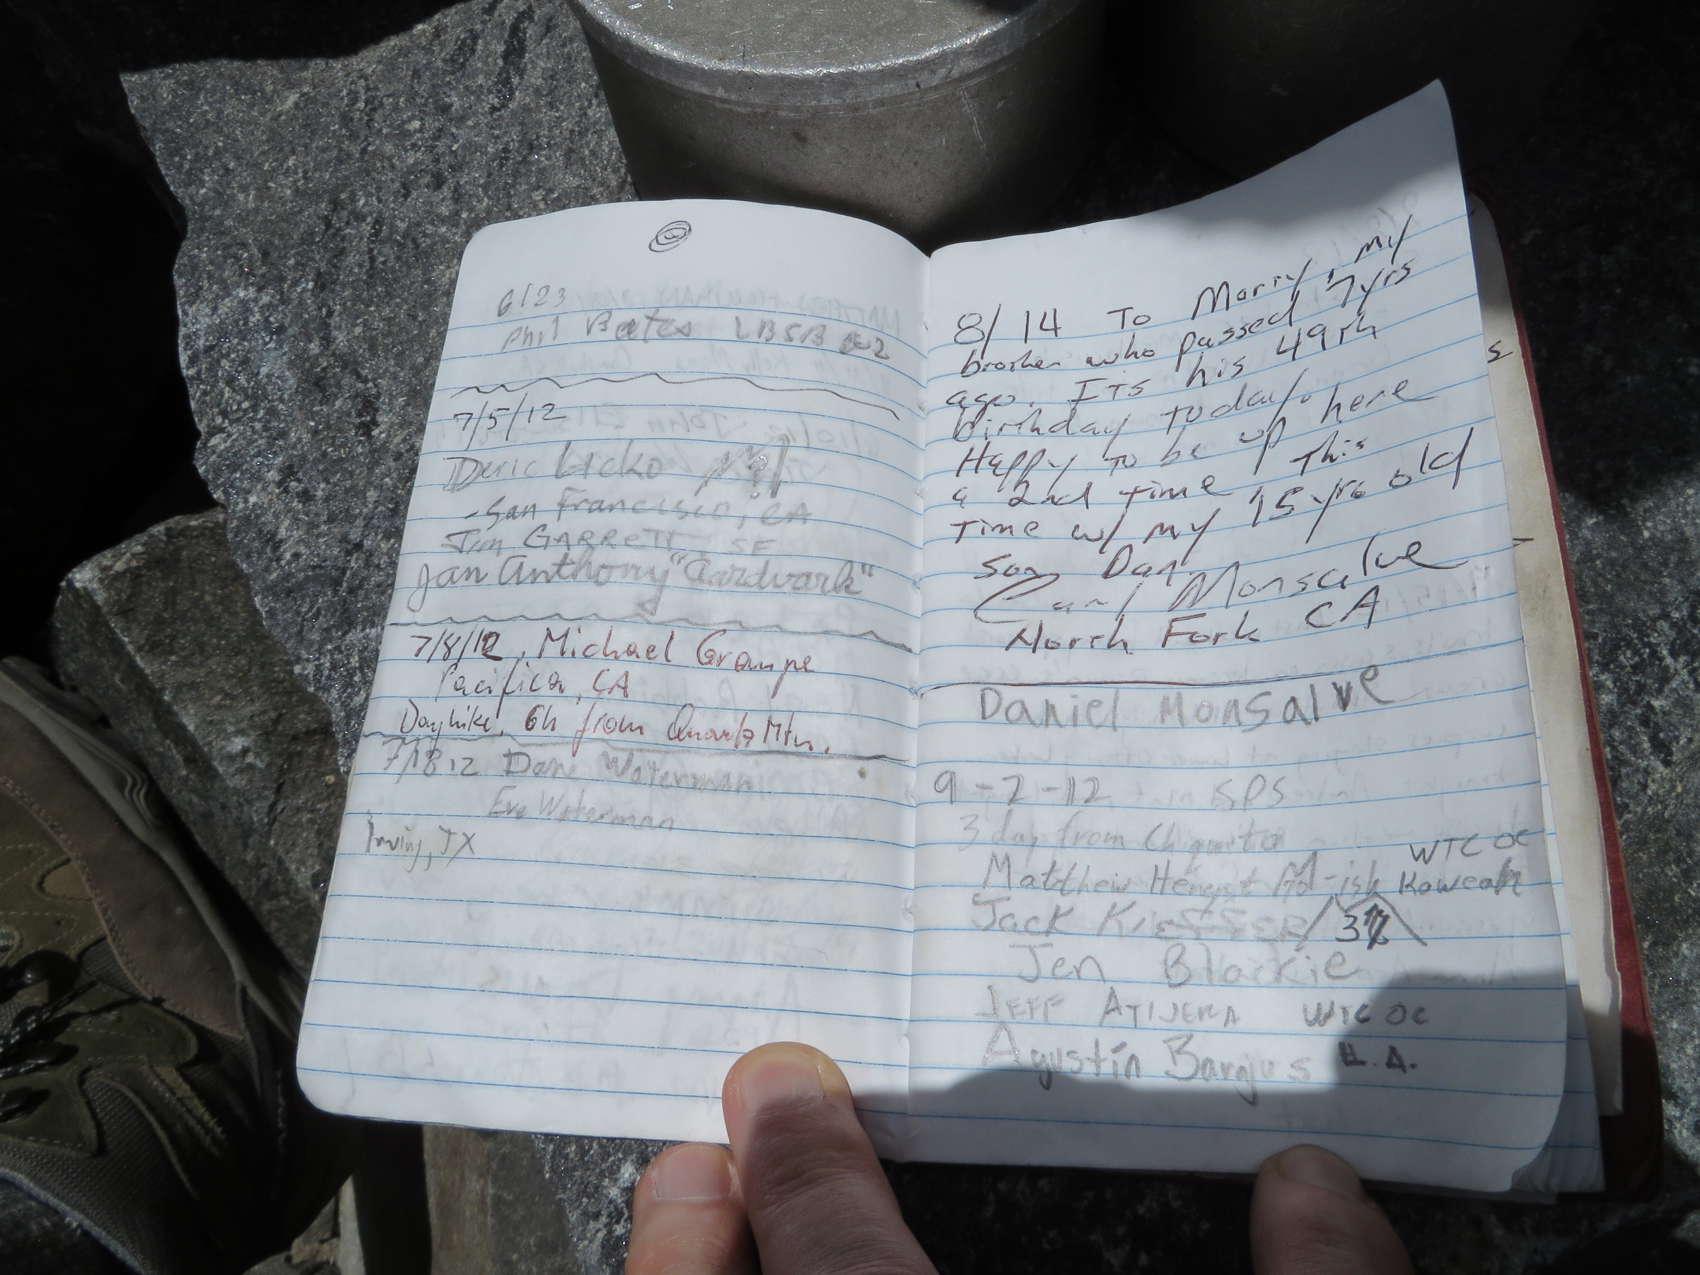 6/23
Phil Bates LBSB
7/5/12
Deric Licko
- San Francisco, CA
Jim GARRETT SF
Jan Anthony "Aardvark"
7/8/12, Michael Graupe
Pacifica, CA
Dayhike, 6h from Quartz Mtn.
7/18 12 Dane Waterman
Eve Waterman
Irving, TX
8/14 To Marry, my
brother who passed 7yrs
ago. Its his 49th
birthday today.
Happy to be up here
a 2nd time This
Time w/ my 15 yrs old
son Dan.
Carl Monsalve
North Fork CA
Daniel Monsalve
9-2-12 SPS
3 day from Chiquito
WTC OC
Matthew Hengst Kaweah
Jack Kieffer
Jen Blackie
JEFF ATIJERA WTC OC
Agustín Bargus L.A.